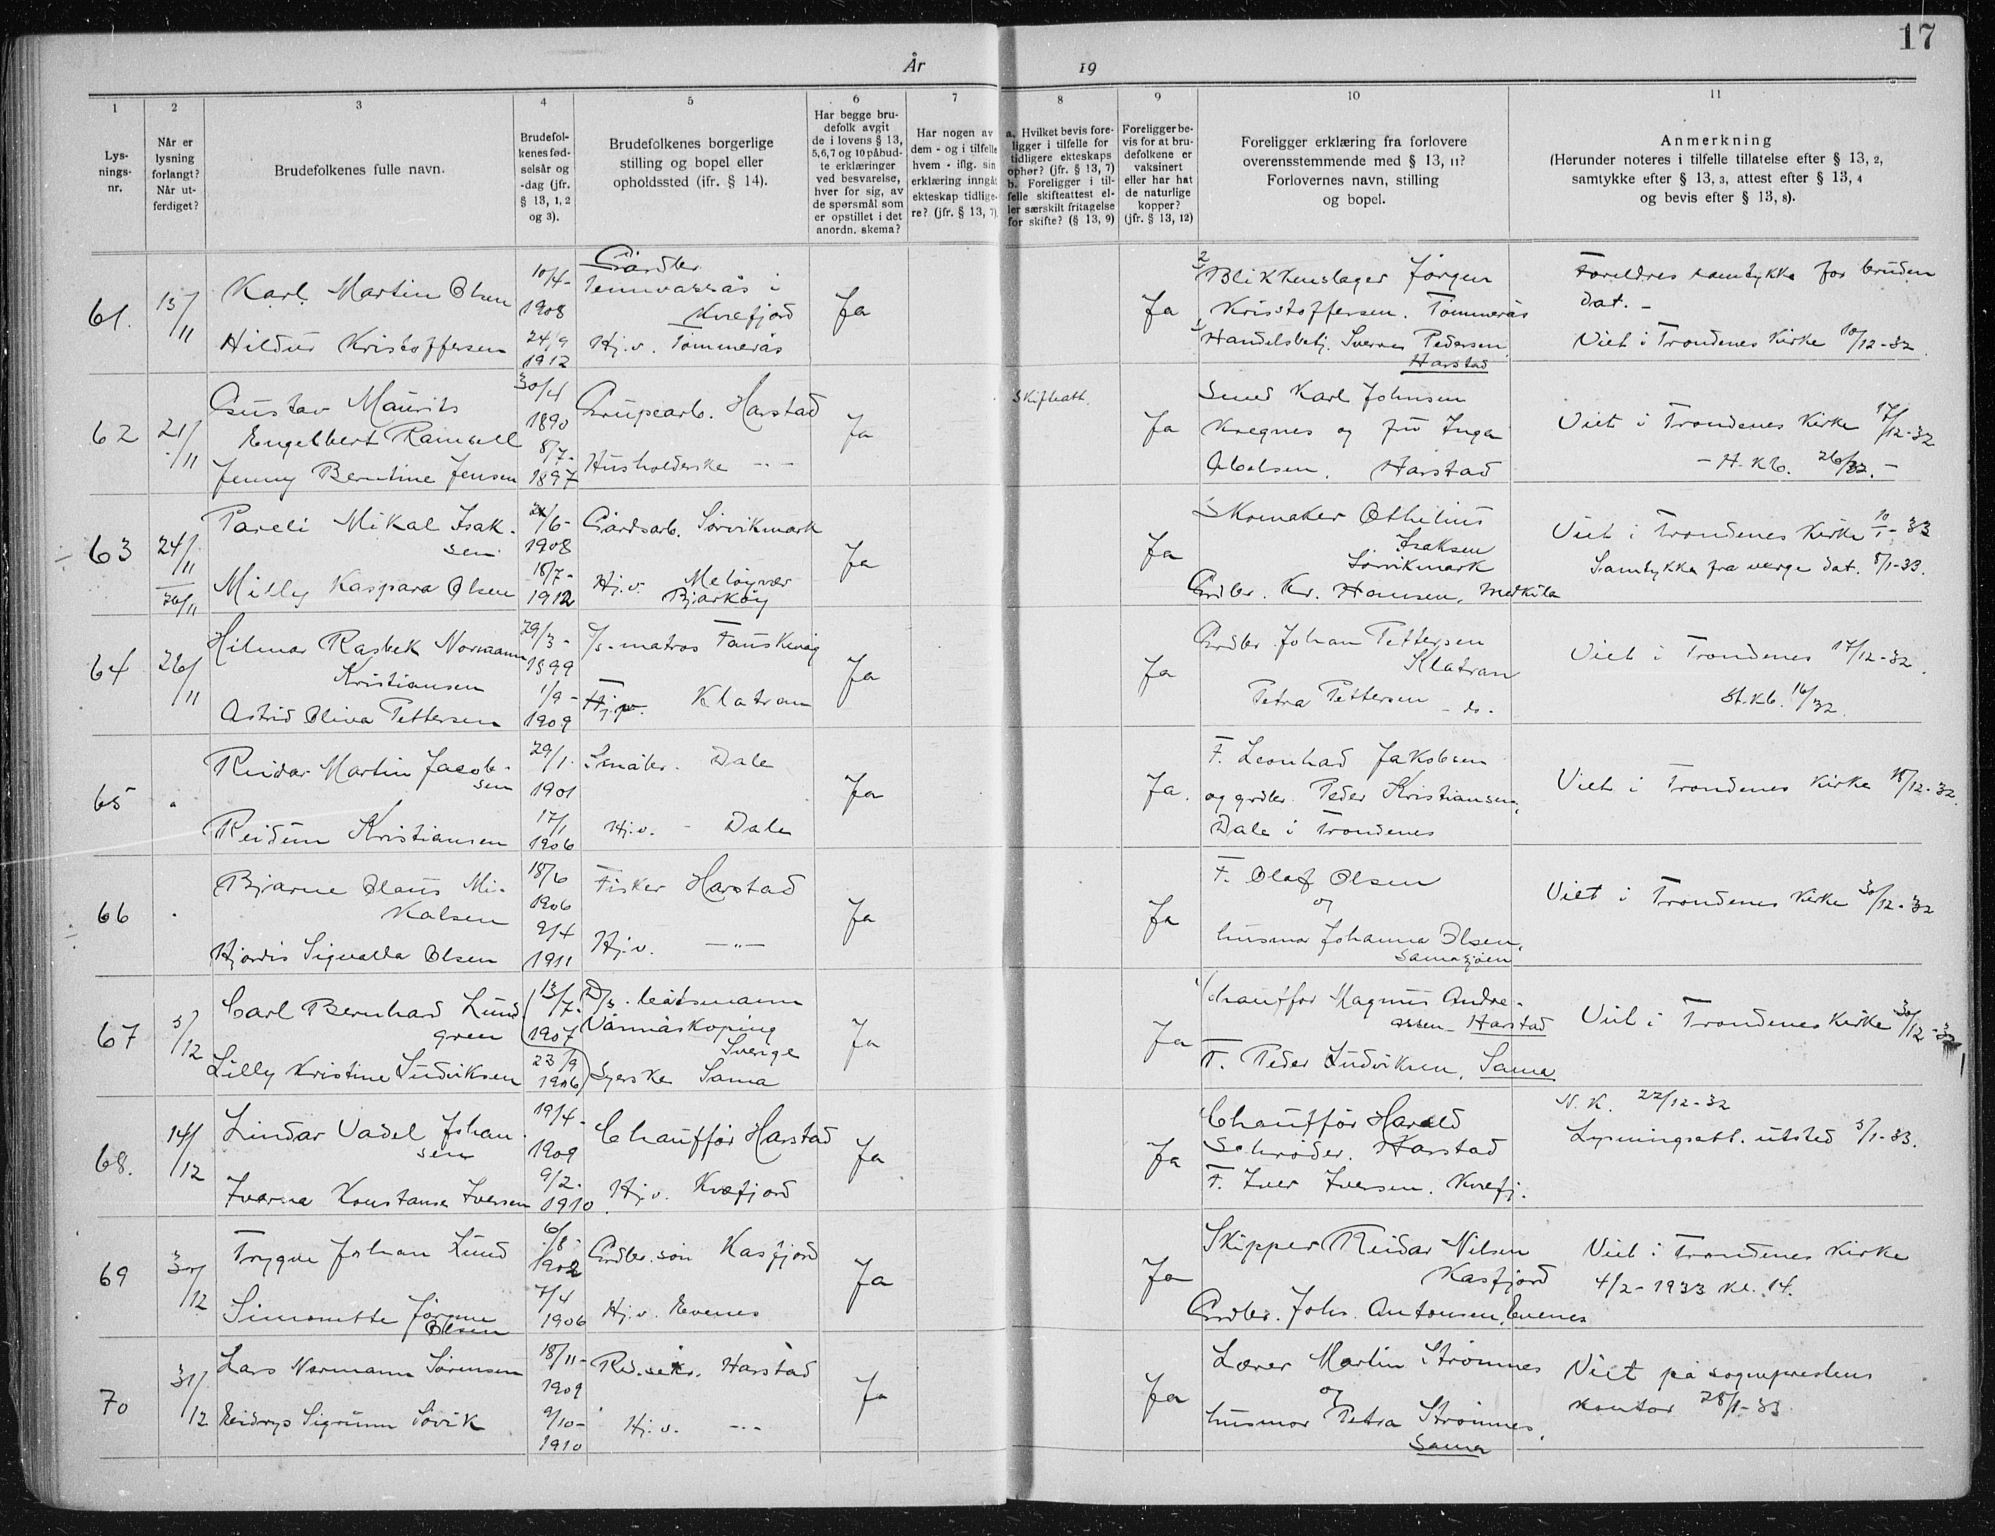 17
År 19
1 2 3 4 5 6 7 8 9 10 11
Lys-
nings-
nr.
Når er
lysning
forlangt?
Når ut-
ferdiget?
Brudefolkenes fulle navn.
Brudefol-
kenes fød-
selsår og
-dag (jfr.
§ 13, 1, 2
og 3).
Brudefolkenes borgerlige
stilling og bopel eller
opholdssted (ifr. § 14).
Har begge bru-
defolk avgit
de i lovens § 13,
5,6,7 og 10 påbud-
te erklæringer
ved besvarelse,
hver for sig, av
de spørsmål som
er opstillet i det
anordn. skema?
Har nogen av
dem - og i tilfelle
hvem - iflg. sin
erklæring inngåt
ekteskap tidlige-
re? (jfr. § 13, 7).
a. Hvilket bevis fore-
ligger i tilfelle for
tidligere ekteskaps
ophør? (jfr. § 13, 7)
b. Foreligger i til-
felle skifteattest el-
ler særskilt fritagelse
for skifte? (§ 13, 9)
Foreligger be-
vis for at bru-
defolkene er
vaksinert
eller har hat
de naturlige
kopper?
(jfr. § 13, 12)
Foreligger erklæring fra forlovere
overensstemmende med § 13, 11?
Forlovernes navn, stilling
og bopel.
Anmerkning
(Herunder noteres i tilfelle tillatelse efter § 13, 2,
samtykke efter § 13, 3, attest efter § 13, 4
og bevis efter § 13, 8).
61. 15/11
Karl Martin Olsen
10/4-
1908
Gårdbr.
Tennvassås i
Kvæfjord
Hildur Kristoffersen
24/9
1912
Hj.v. Tømmerås
Ja
Ja
Blikkenslager Jørgen
Kristoffersen. Tømmerås
Handelsbetj. Sverre Pedersen
Harstad
Foreldres samtykke for bruden
dat. -
Viet i Trondenes Kirke 10/12-32
62 21/11
Gustav Maurits
Engelbert Ramsell
30/4
1890
Grupearb. Harstad
Jenny Berntine Jensen
8/7-
1897
Husholderske -"-
Ja
Skifteatt.
Ja
Smed Karl Johnsen
Kregnes og fru Inga
Abelsen. Harstad
Viet i Trondenes Kirke 17/12-32
- H.Kb. 26/32. -
63 24/11
26/11
Pareli Mikal Isak-
sen
1908
Gårdsarb. Sørvikmark
Milly Kaspara Olsen
18/7-
1912
Hj.v. Meløyvær
Bjarkøy
Ja
Ja
Skomaker Othelius
Isaksen
Sørvikmark
Grdbr. Kr. Hansen, Medkila
Viet i Trondenes Kirke 10/1-33
Samtykke fra verge dat. 5/1-33.
64 26/11
Hilmar Rasbek Normann
Kristiansen
29/3-
1899
D/s-matros Fauskevåg
Astrid Oliva Pettersen
1/9-
1909
Hj.v. Klatran
Ja
Ja
Grdbr. Johan Pettersen
Klatran
Petra Pettersen - do.
Viet i Trondenes 17/12-32.
St.Kb. 16/32.
65 "
Reidar Martin Jacob-
sen
29/1.
1901
Småbr. Dale
Reidun Kristiansen
17/1
1906
Hj.v. - Dale
Ja
Ja.
F. Leonhad Jakobsen
og grdbr. Peder Kristiansen,
Dale i Trondenes
Viet i Trondenes Kirke 18/12-32.
66 "
Bjarne Olaus Mi-
kalsen
18/6
1906
Fisker Harstad
Hjørdis Signalla Olsen
9/4
1911
Hj.v. -"-
Ja
Ja
F. Olaf Olsen
og
husmor Johanna Olsen,
Samasjøen
Viet i Trondenes Kirke 30/12-32
67 5/12
Carl Bernhard Lund-
green
13/7.
1907
D/s. båtsmann
Värnäskoping
Sverige
Lilly Kristine Ludviksen
23/9
1906
Syerske Sama
Ja
Ja
Chauffør Magnus Andre-
assen - Harstad
F. Peder Ludviksen, Sama
Viet i Trondenes Kirke 30/12-32
68. 14/12
Lindar Vadel Johan-
sen
19/4-
1909
Chauffør Harstad
Ivarna Konstanse Iversen
9/2-
1910
Hj.v. Kvæfjord
Ja
Ja
Chauffør Harald
Schrøder. Harstad
F. Iver Iversen. Kvæfj.
N.K. 22/12-32
Lysningsatt. utsted 5/1-33.
69 30/12
Trygve Johan Lund
6/8-
1902
Grdbr.søn Kasfjord
Simonette Jørgine
Olsen
7/4
1906
Hj.v. Evenes
Ja
Ja
Skipper Reidar Nilsen
Kasfjord
Grdbr. Johs. Antonsen, Evenes
Viet i Trondenes Kirke
4/2-1933 kl. 14.
70 31/12
Lars Normann Sørensen
18/11-
1909
Red.sekr. Harstad
Sigrunn Søvik
9/10-
1910
Hj.v. -"-
Ja
Ja
Lærer Martin Strømnes
og
husmor Petra Strømnes,
Sama
Viet på sogneprestens
kontor 28/1-33